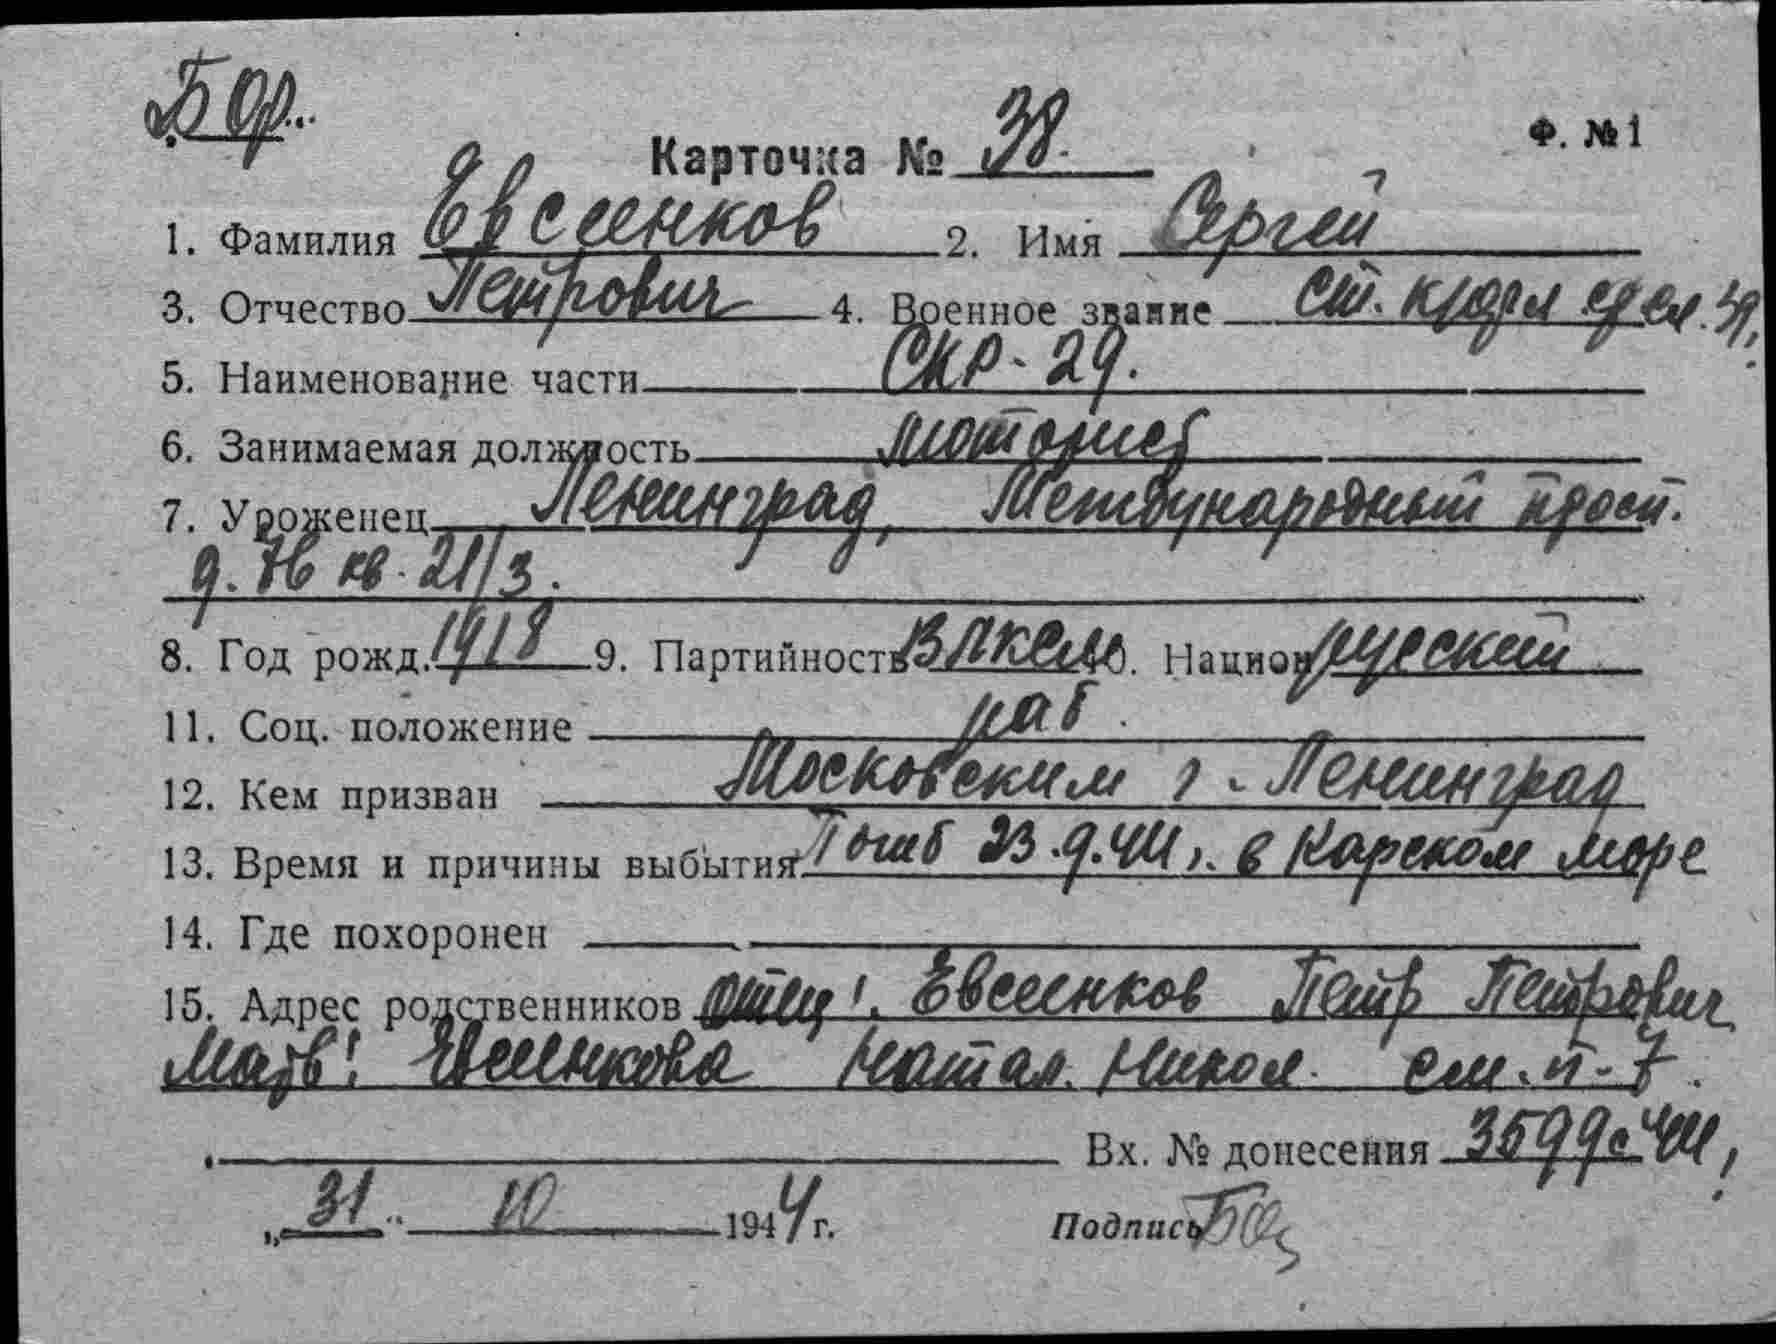 Бор..
Ф. № 1
Карточка № 38.
1. Фамилия Евсеенков 2. Имя Сергей
3. Отчество Петрович 4. Военное звание ст. кр-ц
5. Наименование части СКР-29.
6. Занимаемая должность моторист
7. Уроженец Ленинград, Международный просп.
д. кв. 21/3.
8. Год рожд. 1918 9. Партийность ВЛКСМ 10. Национ русский
11. Соц. положение раб.
12. Кем призван Московским г. Ленинград
13. Время и причины выбытия Погиб 23.9.44 г. в Карском море
14. Где похоронен
15. Адрес родственников отец: Евсеенков Петр Петрович
Мать: Евсеенкова Натал. Никол. см. п-7.
Вх. № донесения 3599с 44 г.
„31" 10 1944 г. Подпись